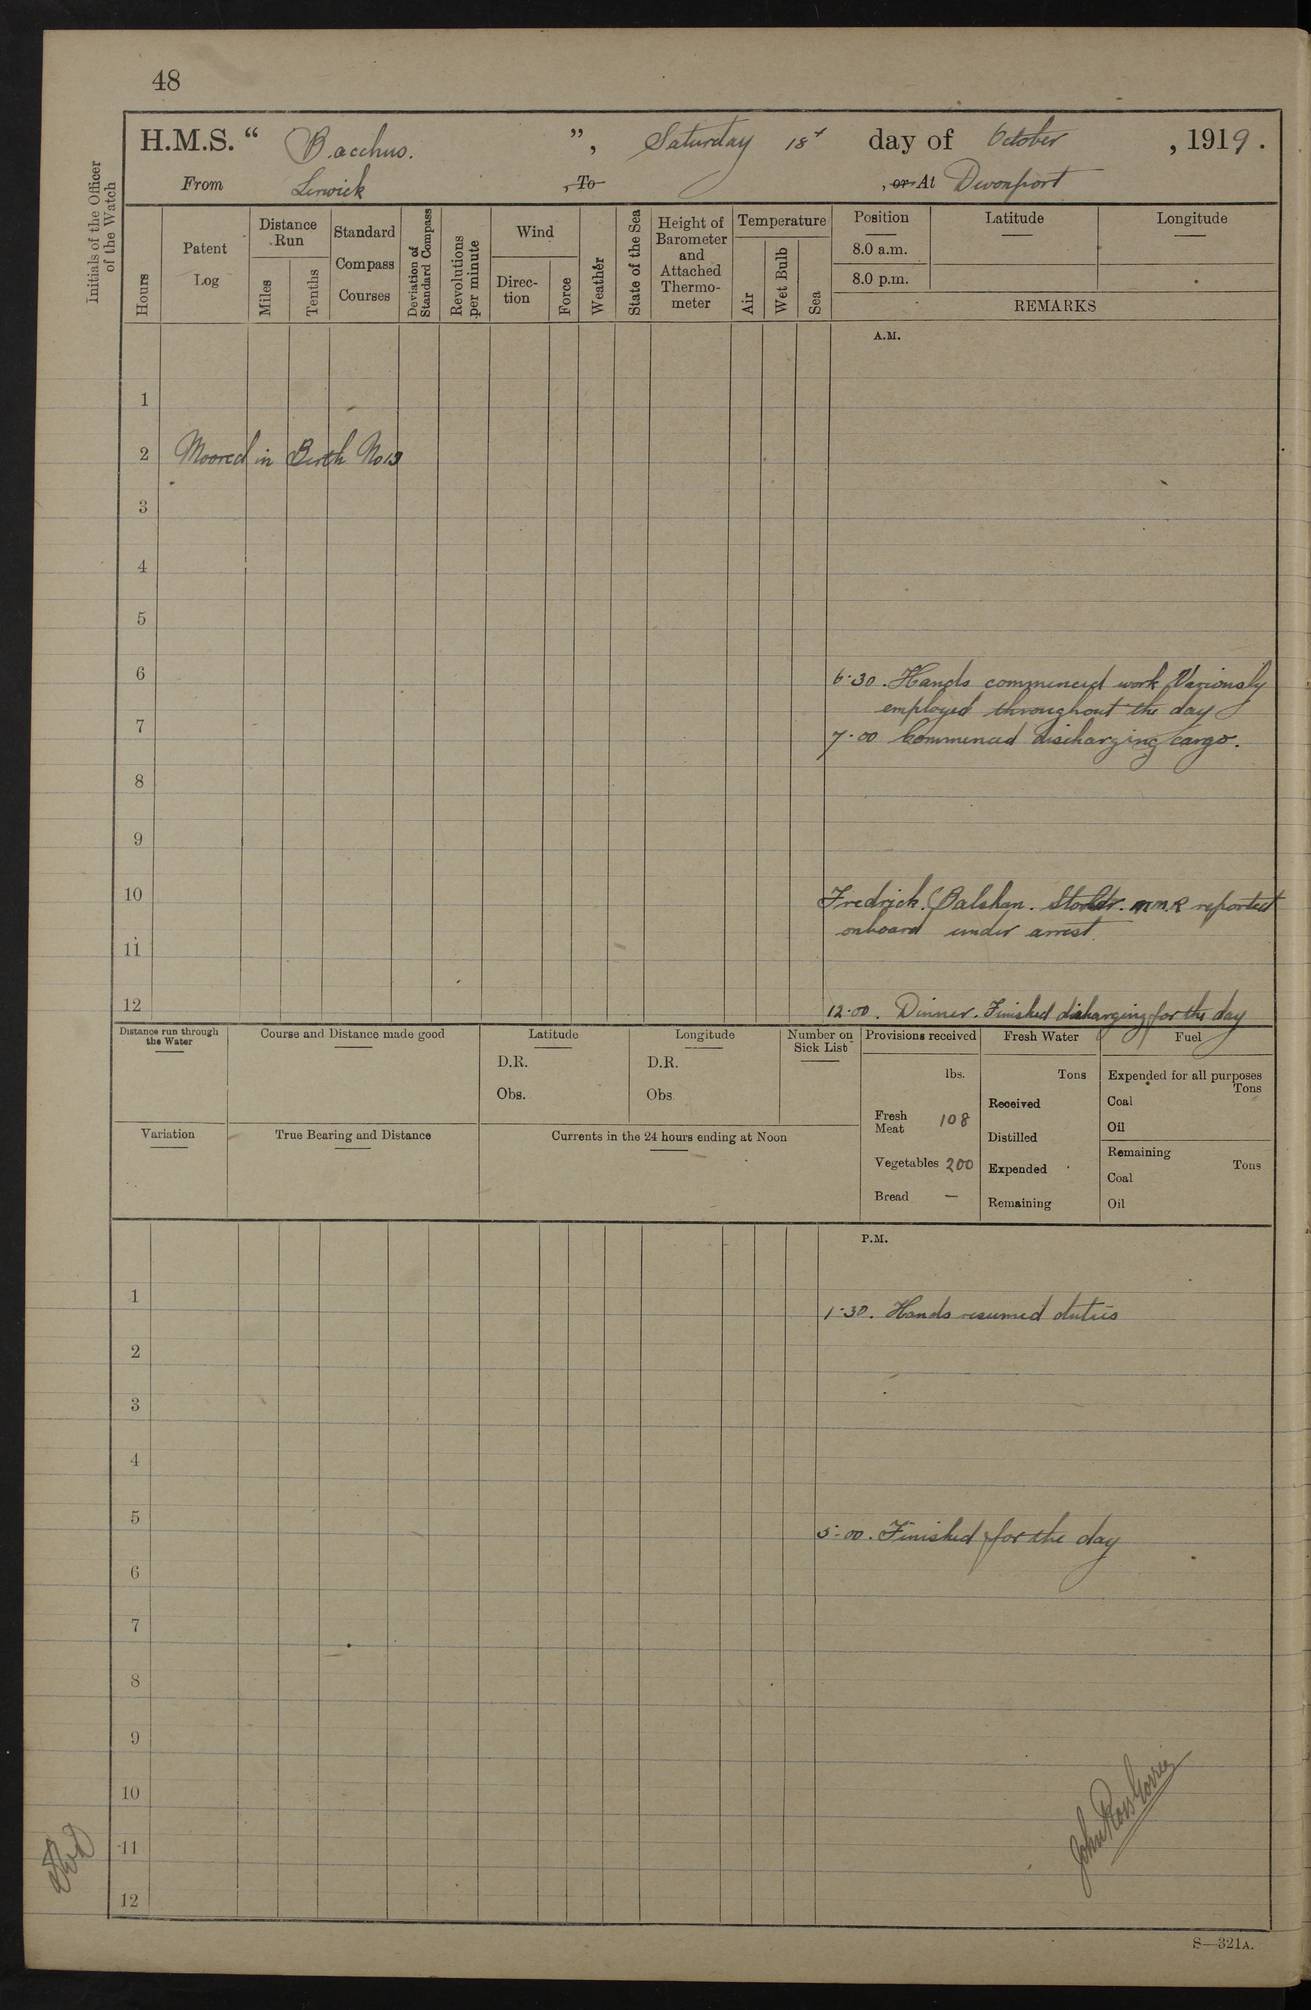 48
H.M.S. “ Bacchus. ”, Saturday 18t day of October, 1919.
From Lerwick, To , or At Devonport
Initials of the Officer of the Watch
Hours
Patent Log
Distance Run
Miles
Tenths
Standard Compass Courses
Deviation of Standard Compass
Revolutions per minute
Wind
Direction
Force
Weather
State of the Sea
Height of Barometer and Attached Thermometer
Temperature
Air
Wet Bulb
Sea
Position
8.0 a.m.
8.0 p.m.
Latitude
Longitude
REMARKS
A.M.
1
2 Moored in Berth No 13
3
4
5
6 6.30. Hands commenced work Variously
employed throughout the day
7 7.00 Commenced discharging cargo.
8
9
10 Fredrick. Balshan. M.M.R reported
onboard under arrest
11
12 12.00. Dinner. Finished discharging for the day
Distance run through the Water
Course and Distance made good
Latitude
D.R.
Obs.
Longitude
D.R.
Obs
Number on Sick List
Provisions received
lbs.
Fresh Meat 108
Vegetables 200
Bread —
Fresh Water
Tons
Received
Distilled
Expended
Remaining
Fuel
Expended for all purposes
Tons
Coal
Oil
Remaining
Tons
Coal
Oil
Variation
True Bearing and Distance
Currents in the 24 hours ending at Noon
P.M.
1 1.30. Hands resumed duties
2
3
4
5 5.00. Finished for the day
6
7
8
9
10
11
12
John Ross Gorrie
S—321A.